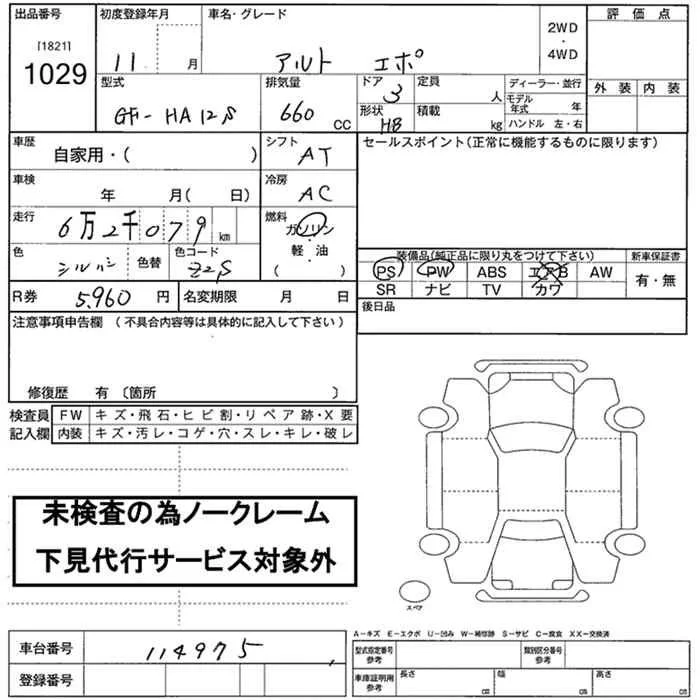 出品番号 初度登録年月 車名・グレード 評価点
[1821]
1029
11 月 アルト エポ 2WD・4WD
型式 排気量 ドア 定員 ディーラー・並行 外装 内装
GF-HA12S 660 CC 3 人 モデル年式 年
形状 積載
HB kg ハンドル 左・右
車歴 シフト セールスポイント(正常に機能するものに限ります)
自家用・( ) AT
車検 冷房
年 月( 日) AC
走行 燃料
6万2千079 km ガソリン・軽油
( )
色 色替 色コード 装備品(純正品に限り丸をつけて下さい) 新車保証書
シルバー Z2S PS PW ABS エアB AW 有・無
SR ナビ TV カワ
R券 5,960 円 名変期限 月 日 後日品
注意事項申告欄 (不具合内容等は具体的に記入して下さい)
修復歴 有 〔箇所 〕
検査員 FW キズ・飛石・ヒビ割・リペア跡・X要
記入欄 内装 キズ・汚レ・コゲ・穴・スレ・キレ・破レ
未検査の為ノークレーム
下見代行サービス対象外
スペア
A-キズ E-エクボ U-凹み W-補修跡 S-サビ C-腐食 XX-交換済
車台番号 114975 型式指定番号 参考 類別区分番号 参考
登録番号 車庫証明用 参考 長さ cm 幅 cm 高さ cm